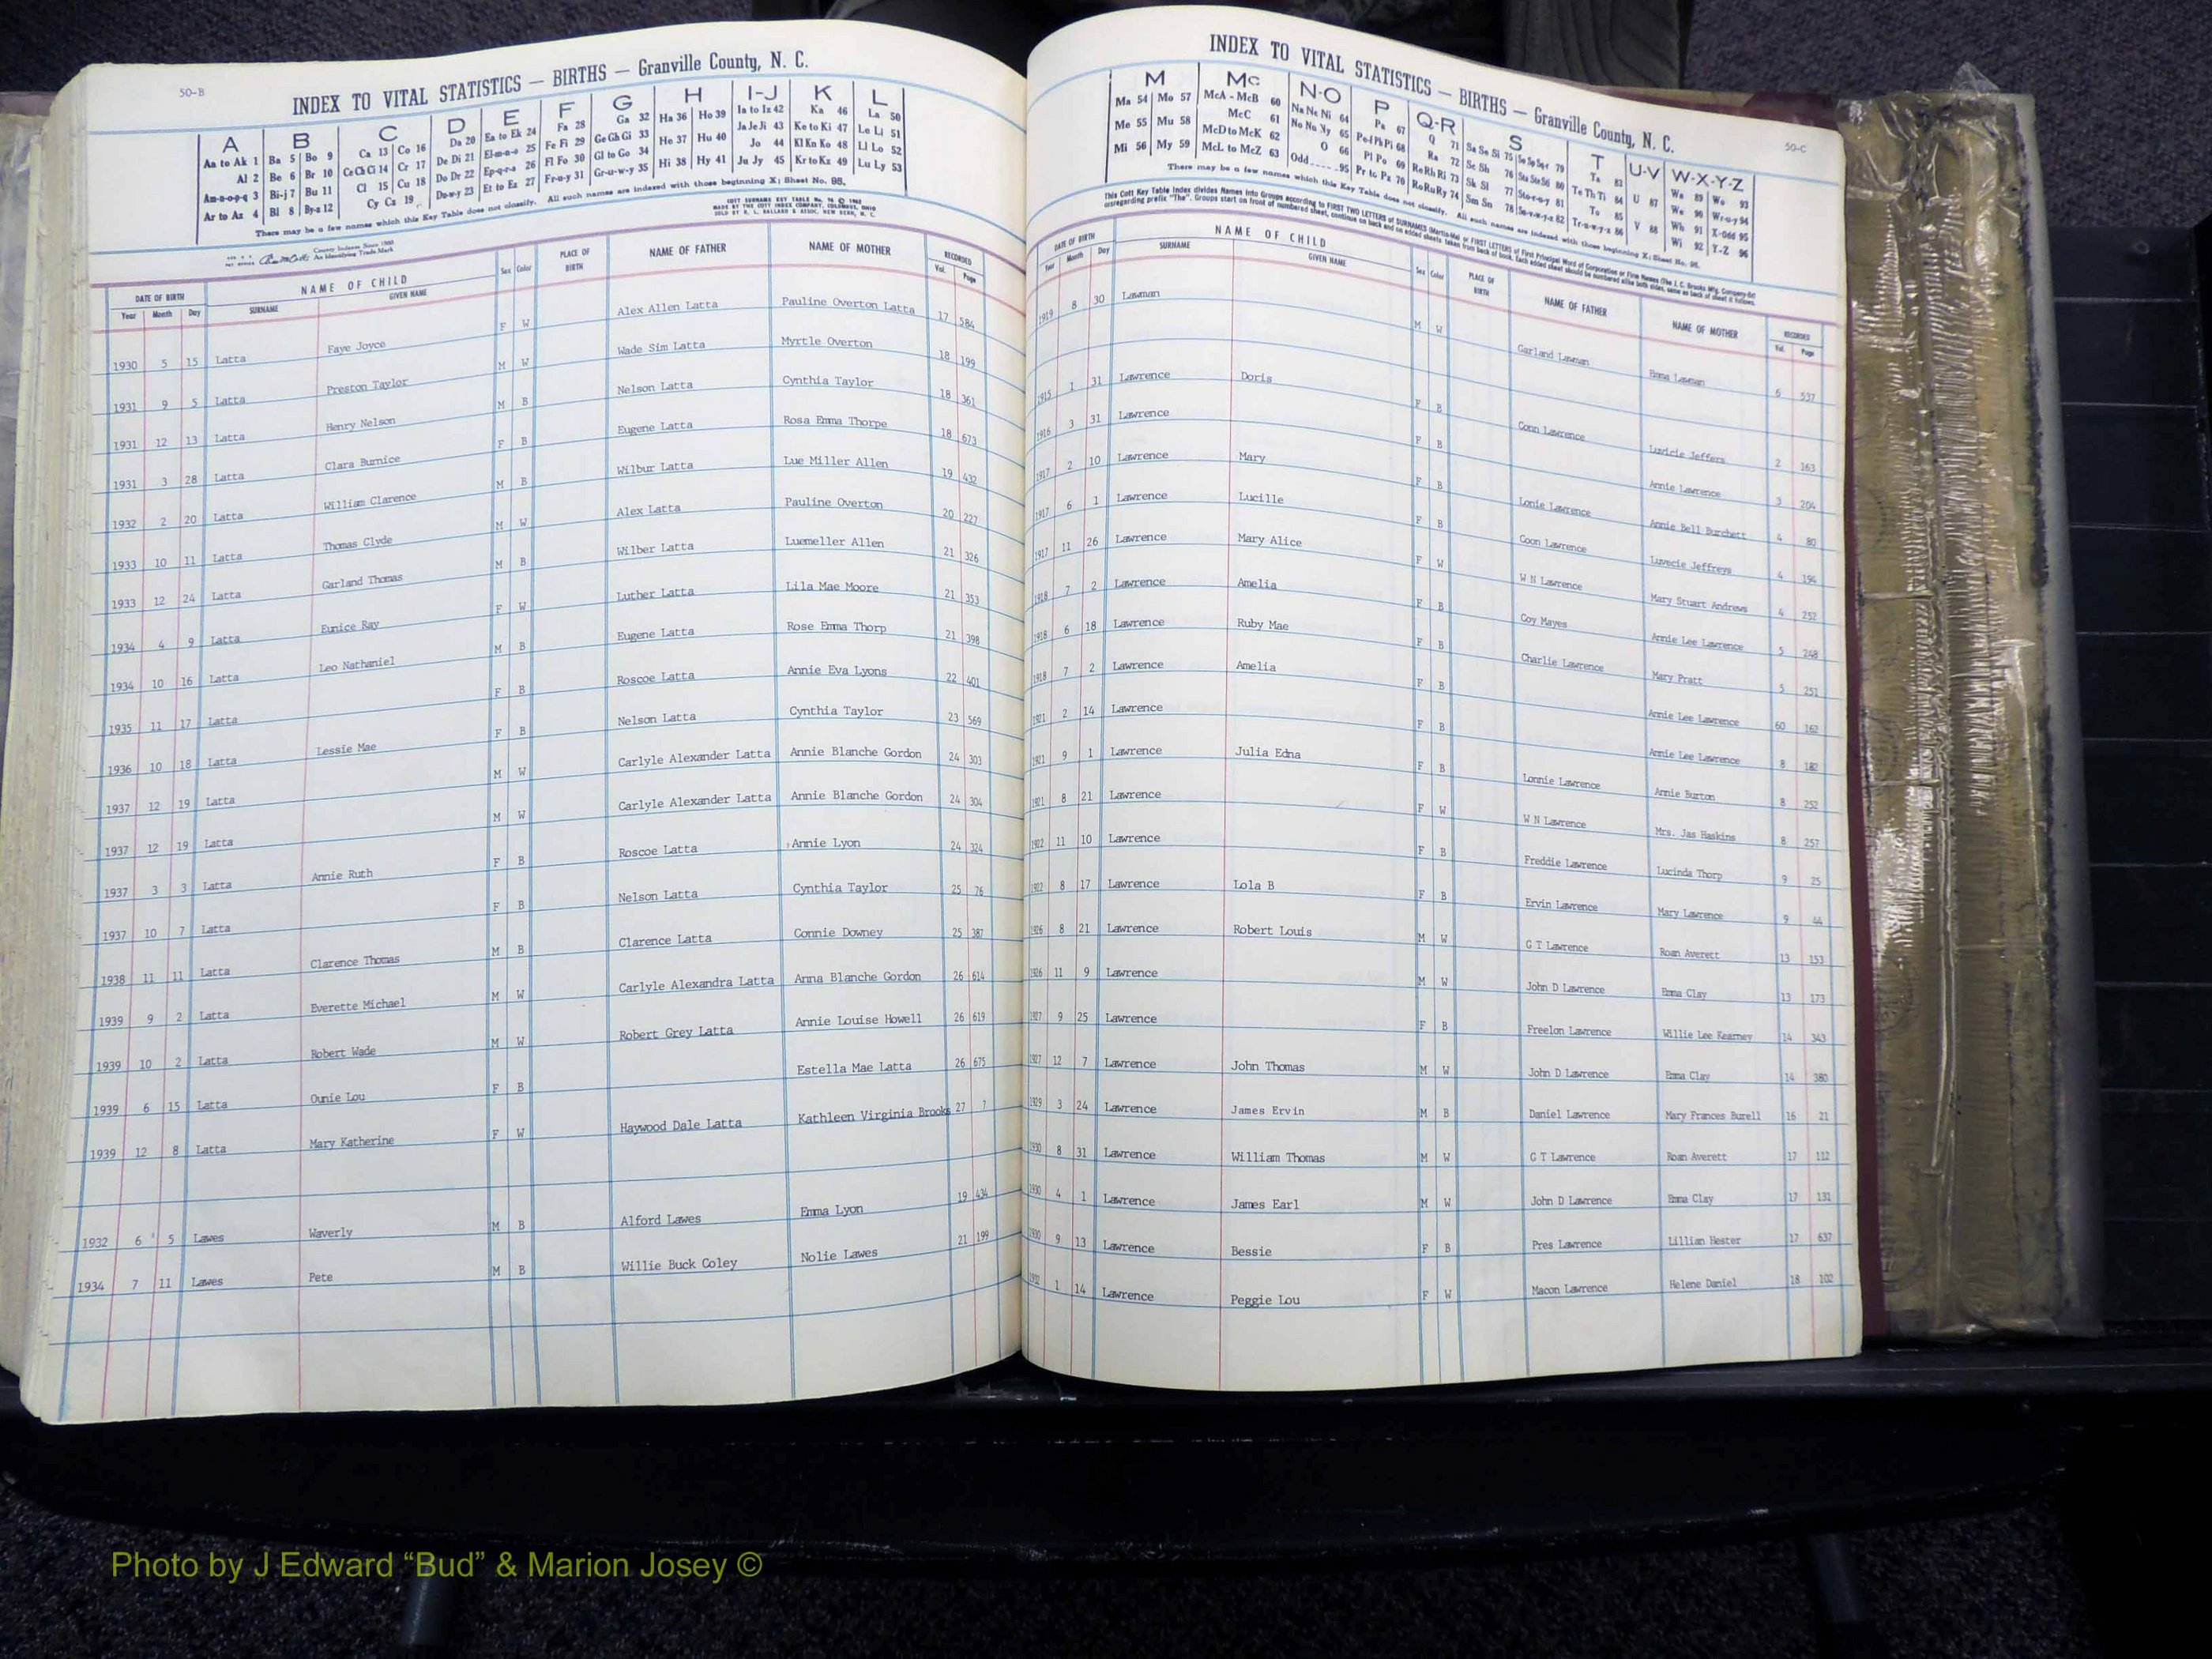 50-B
INDEX TO VITAL STATISTICS — BIRTHS — Granville County, N. C.
A B C D E F G H I-J K L
Aa to Ak 1 Ba 5 Bo 9 Ca 13 Co 16 Da 20 Ea to Ek 24 Fa 28 Ga 32 Ha 36 Ho 39 Ia to Iz 42 Ka 46 La 50
Al 2 Be 6 Br 10 Ce Ch Ci 14 Cr 17 De Di 21 El-m-n-o 25 Fe Fi 29 Ge Gh Gi 33 He 37 Hu 40 Ja Je Ji 43 Ke to Ki 47 Le Li 51
Am-n-o-p-q 3 Bi-j 7 Bu 11 Cl 15 Cu 18 Do Dr 22 Ep-q-r-s 26 Fl Fo 30 Gl to Go 34 Hi 38 Hy 41 Jo 44 Kl Kn Ko 48 Ll Lo 52
Ar to Az 4 Bl 8 By-z 12 Cy Cz 19 Du-w-y 23 Et to Ez 27 Fr-u-y 31 Gr-u-w-y 35 Ju Jy 45 Kr to Kz 49 Lu Ly 53
There may be a few names which this Key Table does not classify. All such names are indexed with those beginning X; Sheet No. 95.
DATE OF BIRTH NAME OF CHILD Sex Color PLACE OF BIRTH NAME OF FATHER NAME OF MOTHER RECORDED
Year Month Day SURNAME GIVEN NAME Vol. Page
1930 5 15 Latta Faye Joyce F W Alex Allen Latta Pauline Overton Latta 17 584
1931 9 5 Latta Preston Taylor M W Wade Sim Latta Myrtle Overton 18 199
1931 12 13 Latta Henry Nelson M B Nelson Latta Cynthia Taylor 18 361
1931 3 28 Latta Clara Burnice F B Eugene Latta Rosa Emma Thorpe 18 673
1932 2 20 Latta William Clarence M B Wilbur Latta Lue Miller Allen 19 432
1933 10 11 Latta Thomas Clyde M W Alex Latta Pauline Overton 20 227
1933 12 24 Latta Garland Thomas M B Wilber Latta Luemeller Allen 21 326
1934 4 9 Latta Eunice Ray F W Luther Latta Lila Mae Moore 21 353
1934 10 16 Latta Leo Nathaniel M B Eugene Latta Rose Emma Thorp 21 398
1935 11 17 Latta F B Roscoe Latta Annie Eva Lyons 22 401
1936 10 18 Latta Lessie Mae F B Nelson Latta Cynthia Taylor 23 569
1937 12 19 Latta M W Carlyle Alexander Latta Annie Blanche Gordon 24 303
1937 12 19 Latta M W Carlyle Alexander Latta Annie Blanche Gordon 24 304
1937 3 3 Latta Annie Ruth F B Roscoe Latta Annie Lyon 24 324
1937 10 7 Latta F B Nelson Latta Cynthia Taylor 25 76
1938 11 11 Latta Clarence Thomas M B Clarence Latta Connie Downey 25 387
1939 9 2 Latta Everette Michael M W Carlyle Alexandra Latta Anna Blanche Gordon 26 614
1939 10 2 Latta Robert Wade M W Robert Grey Latta Annie Louise Howell 26 619
1939 6 15 Latta Ounie Lou F B Estella Mae Latta 26 675
1939 12 8 Latta Mary Katherine F W Haywood Dale Latta Kathleen Virginia Brooks 27 7
1932 6 5 Lawes Waverly M B Alford Lawes Emma Lyon 19 434
1934 7 11 Lawes Pete M B Willie Buck Coley Nolie Lawes 21 199
50-C
INDEX TO VITAL STATISTICS — BIRTHS — Granville County, N. C.
M Mc N-O P Q-R S T U-V W-X-Y-Z
Ma 54 Mo 57 McA - McB 60 Na Ne Ni 64 Pa 67 Q 71 Sa Se Si 75 Ta 83 Wa 89 Wo 93
Me 55 Mu 58 McC 61 No Nu Ny 65 Pe-f Ph Pi 68 Ra 72 Sc Sh 76 Te Th Ti 84 U 87 We 90 Wr-u-y 94
Mi 56 My 59 McD to McK 62 O 66 Pl Po 69 Re Rh Ri 73 Sk Sl 77 To 85 Wh 91 X-Odd 95
McL to McZ 63 Odd 95 Pr to Pz 70 Ro Ru Ry 74 Sm Sn 78 Tr-u-w-y-z 86 V 88 Wi 92 Y-Z 96
There may be a few names which this Key Table does not classify. All such names are indexed with those beginning X; Sheet No. 95.
DATE OF BIRTH NAME OF CHILD Sex Color PLACE OF BIRTH NAME OF FATHER NAME OF MOTHER RECORDED
Year Month Day SURNAME GIVEN NAME Vol. Page
1919 8 30 Lawman M W Garland Lawman Emma Lawman 6 537
1915 1 31 Lawrence Doris F B Conn Lawrence Luvicie Jeffers 2 163
1916 3 31 Lawrence F B Annie Lawrence 3 204
1917 2 10 Lawrence Mary F B Lonie Lawrence Annie Bell Burchett 4 80
1917 6 1 Lawrence Lucille F B Coon Lawrence Luvecie Jeffreys 4 194
1917 11 26 Lawrence Mary Alice F W W N Lawrence Mary Stuart Andrews 4 252
1918 7 2 Lawrence Amelia F B Coy Mayes Annie Lee Lawrence 5 248
1918 6 18 Lawrence Ruby Mae F B Charlie Lawrence Mary Pratt 5 251
1918 7 2 Lawrence Amelia F B Annie Lee Lawrence 60 162
1921 2 14 Lawrence F B Annie Lee Lawrence 8 182
1921 9 1 Lawrence Julia Edna F B Lonnie Lawrence Annie Burton 8 252
1921 8 21 Lawrence F W W N Lawrence Mrs. Jas Haskins 8 257
1922 11 10 Lawrence F B Freddie Lawrence Lucinda Thorp 9 25
1922 8 17 Lawrence Lola B F B Ervin Lawrence Mary Lawrence 9 44
1926 8 21 Lawrence Robert Louis M W G T Lawrence Roan Averett 13 153
1926 11 9 Lawrence M W John D Lawrence Emma Clay 13 173
1927 9 25 Lawrence F B Freelon Lawrence Willie Lee Kearney 14 343
1927 12 7 Lawrence John Thomas M W John D Lawrence Emma Clay 14 380
1929 3 24 Lawrence James Ervin M B Daniel Lawrence Mary Frances Burell 16 21
1930 8 31 Lawrence William Thomas M W G T Lawrence Roan Averett 17 112
1930 4 1 Lawrence James Earl M W John D Lawrence Emma Clay 17 131
1930 9 13 Lawrence Bessie F B Pres Lawrence Lillian Hester 17 637
1932 1 14 Lawrence Peggie Lou F W Macon Lawrence Helene Daniel 18 102
Photo by J Edward “Bud” & Marion Josey ©